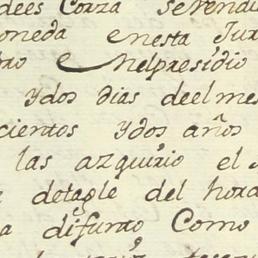 dees Corza se vendi
oneda enesta Jur
ro e nelpresidio
ydos dias deelmes
cientos ydos años
las azquirio el
detagle del hora
a difunto Como